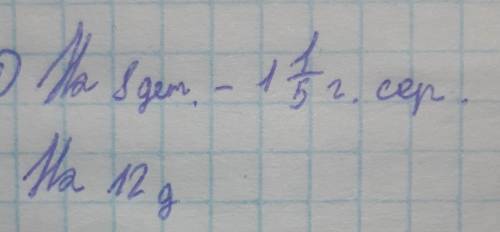 ) На 8 дет. - 1 1/5 г. сер.
На 12 д